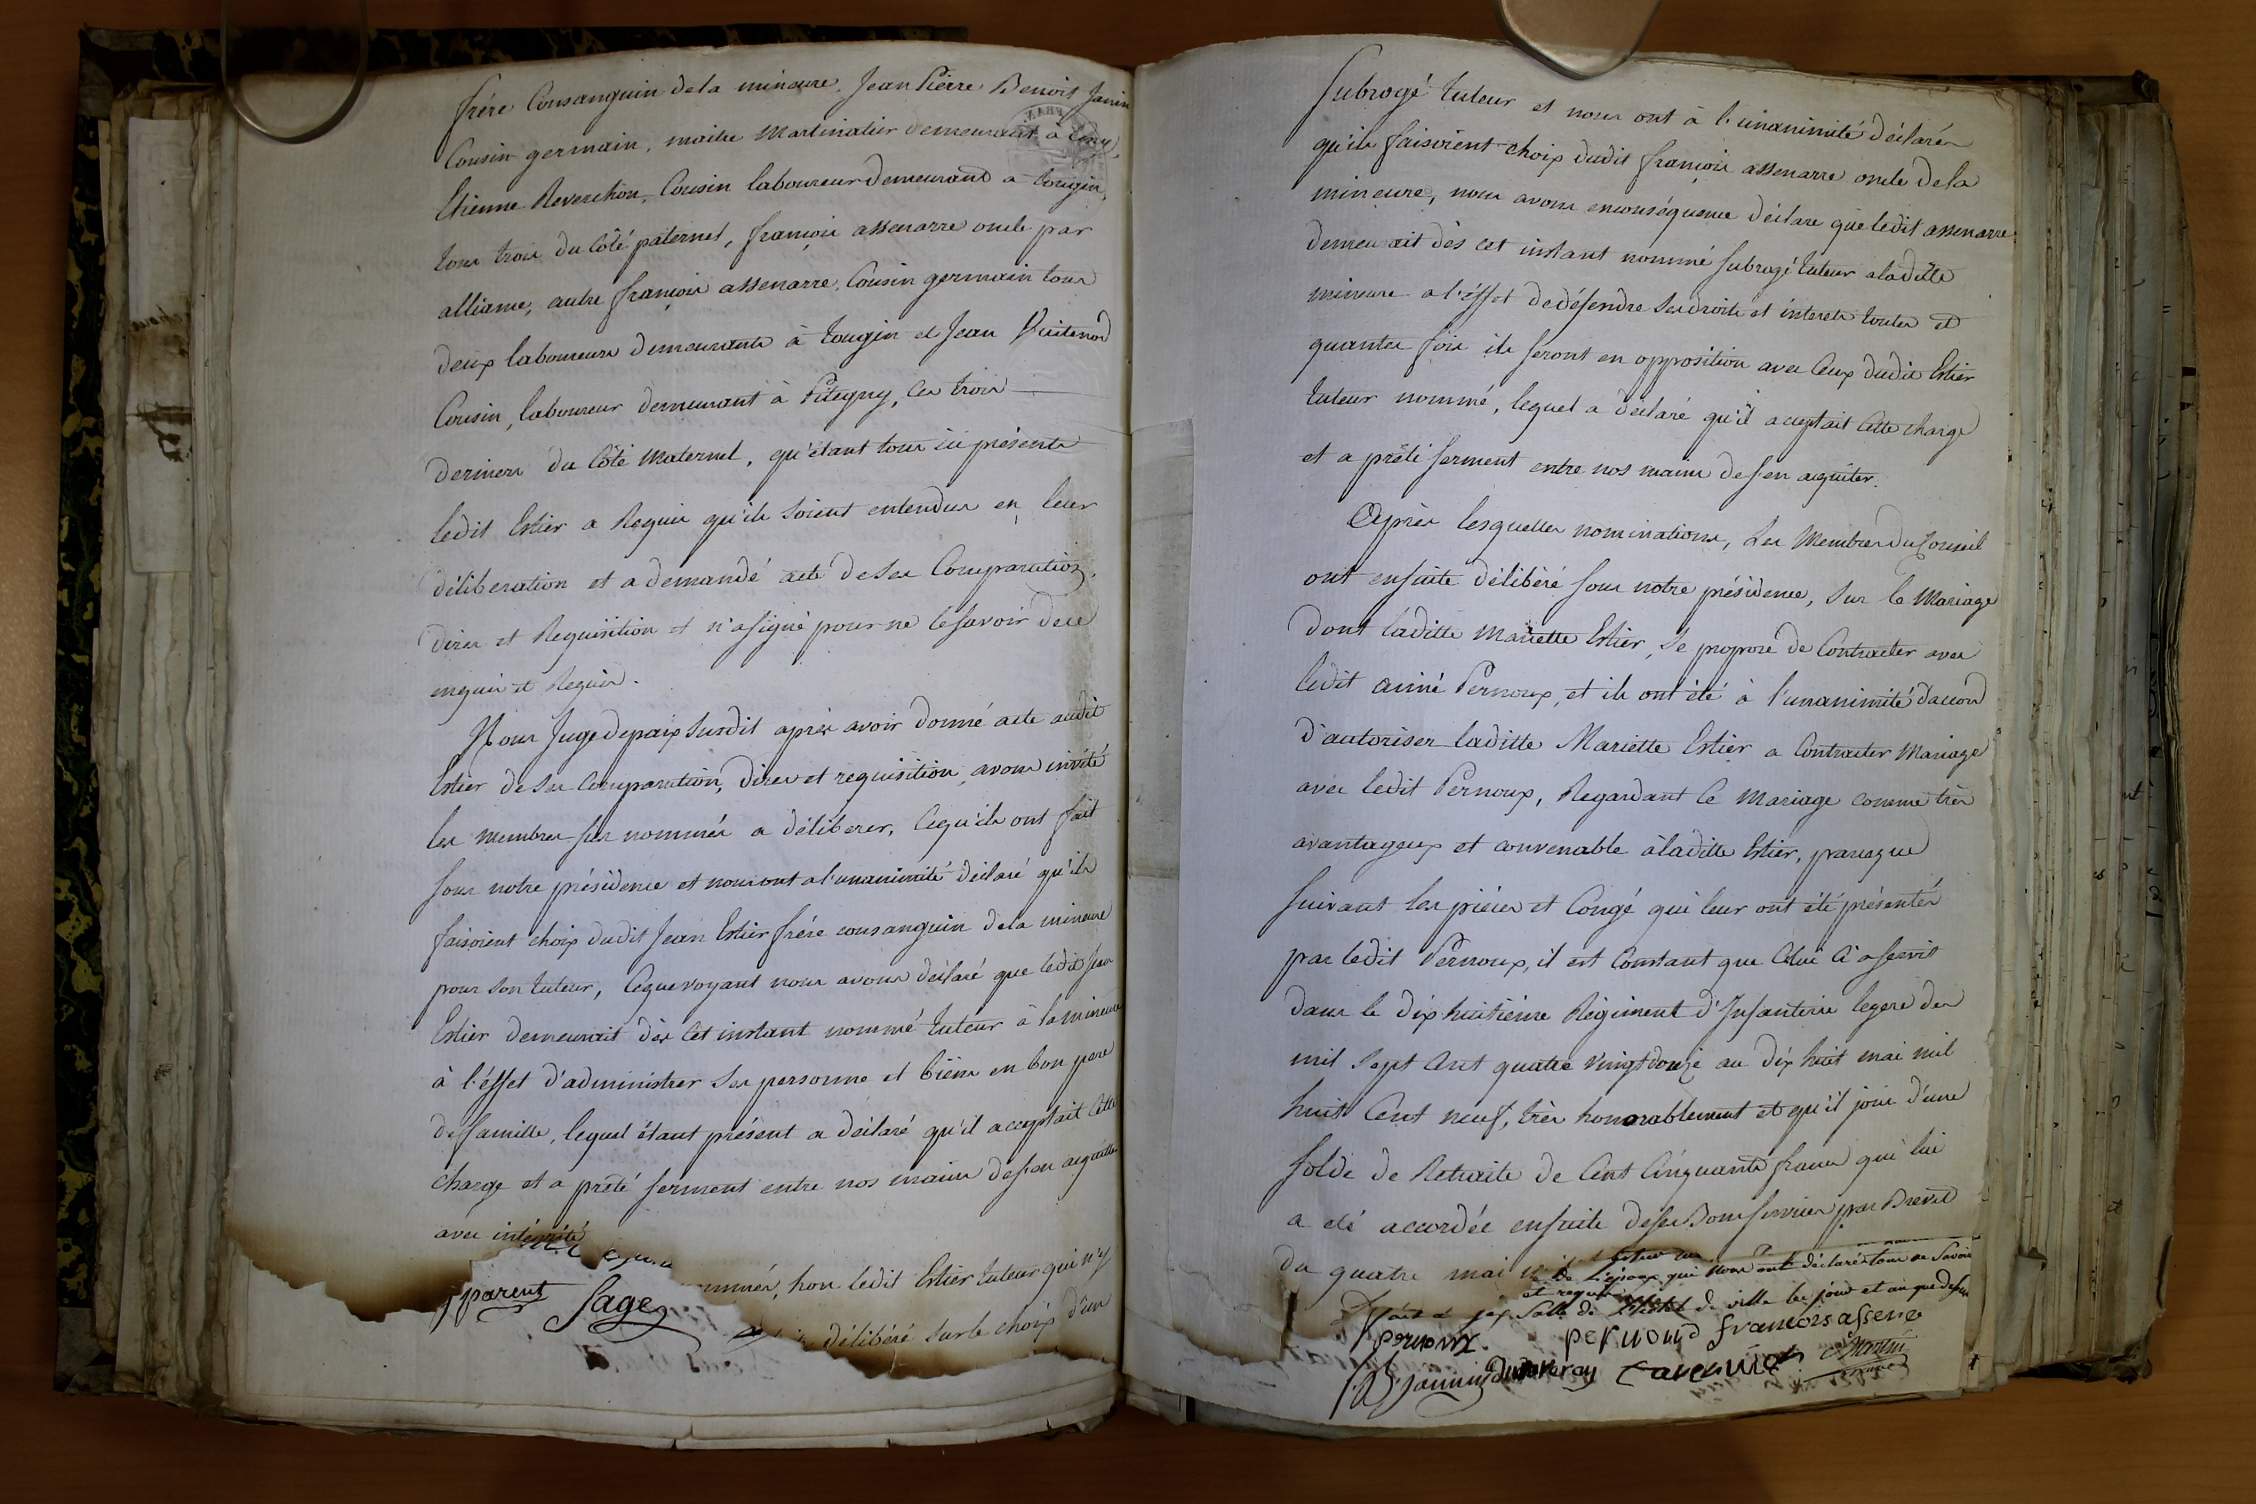 frére Consanguin dela mineure. Jean Pierre Benoit Janin
Cousin germain, maitre Martinatier demeurant à
Etienne Reverchon, Cousin laboureur demeurant a tougin,
tous trois du Côté paternel, françois assenarre oncle par
alliance, autre françois assenarre, Cousin germain tous
deux laboureurs demeurants à tougin et Jean
Cousin, laboureur demeurant à Pitegny, Ces trois
derniers du Côté Maternel, qu'étant tous ici présents
ledit Estier a Requis qu'ils soient entendus en leur
déliberation et a demandé acte de ses Comparution,
dires et Requisition et n'a signé pour ne le savoir de ce
enquis et Requis.
Nous Juge de paix susdit après avoir donné acte audit
Estier de ses Comparution, dires et requisition, avons invité
les membres sus nommés a déliberer, Cequ'ils ont fait
sous notre présidence et nous ont a l'unanimité déclaré qu'ils
faisoient choix dudit Jean Estier frére consanguin dela mineure
pour son tuteur, Ceque voyant nous avons déclaré que ledit Jean
Estier demeurait dès Cet instant nommé tuteur à la mineure
à l'éffet d'administrer ses personne et biens en bon pere
de famille, lequel étant présent a déclaré qu'il acceptait Cette
charge et a prêté serment entre nos mains de s'en aquitter
avec intégrité
hors ledit Estier tuteur qui n'y
parent Sage
délibéré sur le choix d'un
Subrogé tuteur et nous ont à l'unanimité déclarés
qu'ils faisoient choix dudit françois assenarre oncle dela
mineure, nous avons enconséquence déclare que ledit assenarre
demeurait dès cet instant nommé subrogé tuteur aladitte
mineure a l'éffet dedéfendre ses droits et interets toutes et
quantes fois ils seront en opposition avec Ceux dudit Estier
tuteur nommé, lequel a déclaré qu'il aceptait Cette charge
et a prêté serment entre nos mains de s'en aquiter.
Après lesquelles nominations, Les Membres du Conseil
ont ensuite délibéré sous notre présidence, sur le Mariage
dont laditte Mariette Estier, se propose de Contracter avec
ledit Pernoux, et ils ont été à l'unanimité d'accord
d'autoriser laditte Mariette Estier a Contracter Mariage
avec ledit Pernoux, Regardant Ce Mariage comme très
avantageux et convenable àladitte Estier, puisque
suivant les piéces et Congé qui leur ont été présentés
par ledit Pernoux, il est Constant que Celui Ci a servit
dans le dix huitiéme Régiment d'Infanterie legere des
mil sept Cent quatre vingt douze au dix huit mai mil
huit Cent neuf, très honorablement et qu'il joui d'une
solde de Retraite de Cent Cinquante francs qui lui
a été accordée ensuite deses Bons services par Brevet
du quatre mai
qui nous ont déclarés tous ne Savoir
et requis
Salle de l'hôtel de ville les jour et an que dessus
pernoux. pernoud francois assena
Jannin